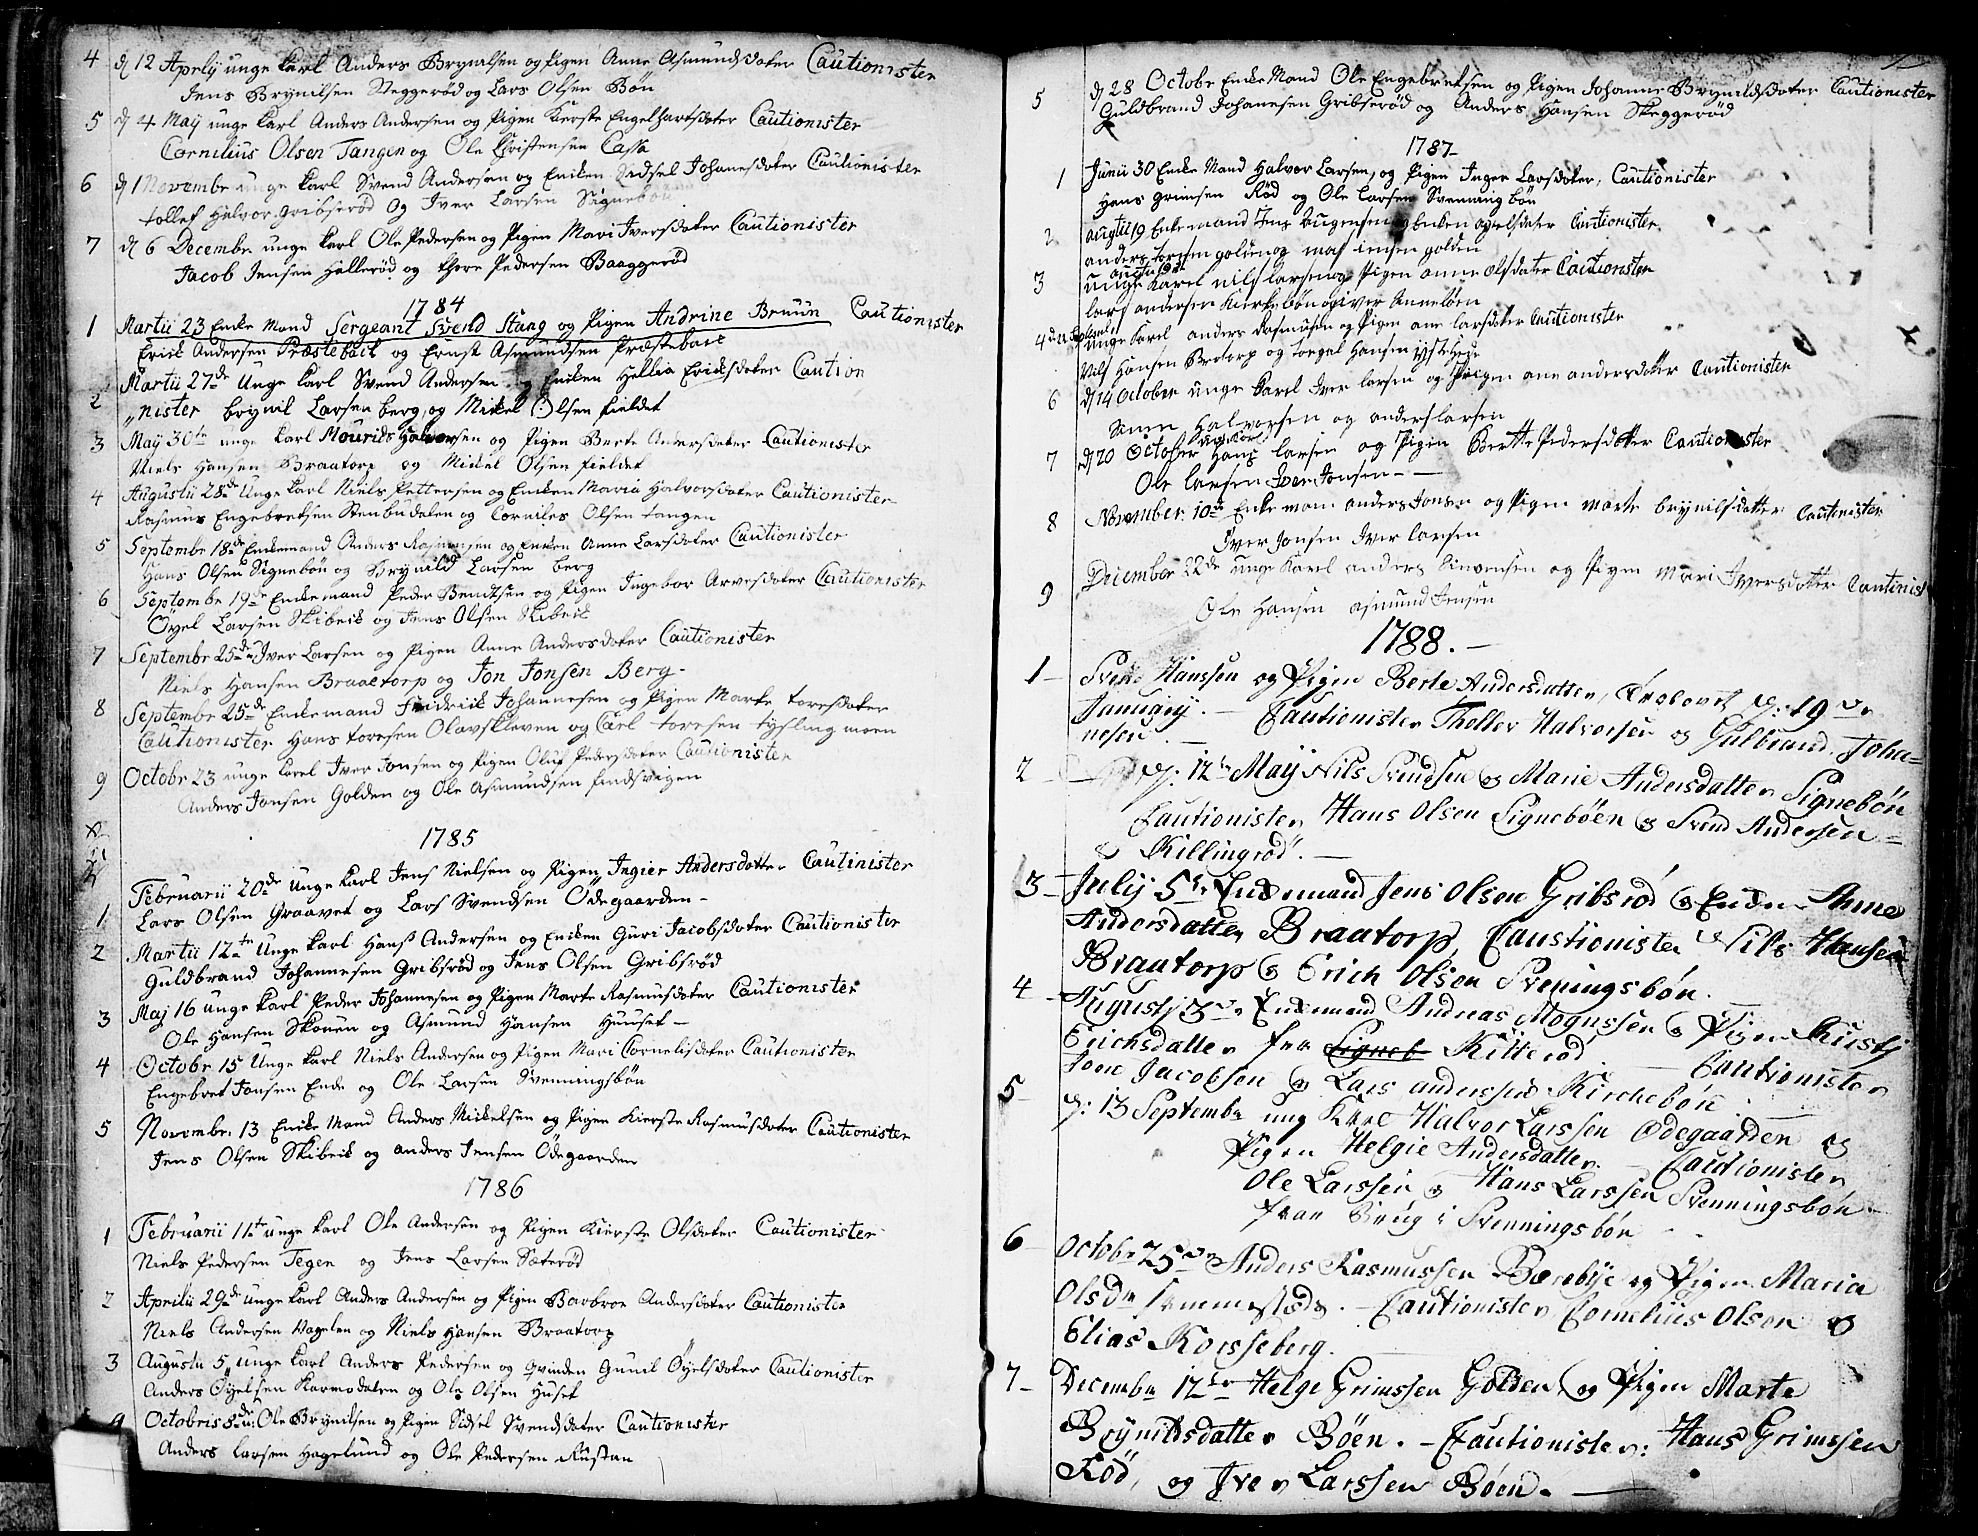 4 d 12 Aprily unge Karl Anders Brynilsen og Pigen Anne Asmundsdater Cautionister
Jens Brynilsen Skeggerød og Lars Olsen Bøn
5 d 4 May unge Karl Anders Andersen og Pigen Kierste Engelhartsdater Cautionister
Cornilius Olsen Tangen og Ole Christensen Cassa
6 d 1 Novembr unge Karl Svend Andersen og Enken Sidsel Johanesdater Cautionister
tollef Halvor. Gribserød og Iver Larsen Signebøn
7 d 6 Decembr unge Karl Ole Pedersen og Pigen Mari Iversdater Cautionister
Jacob Jensen Hallerød og Thore Pedersen Baaggerød
1784
1 Martii 23 Enke Mand Sergeant Svend Stang og Pigen Andrine Bruun Cautionister
Erick Andersen Præsteback og Ernst Asmundsen Præsteback
2 Martii 27de Unge Karl Svend Andersen og Enken Hellia Ericksdater Caution
nister brynil Larsen berg og Mickel Olsen fieldet
3 May 30te unge Karl Mourids Halvorsen og Pigen Berte Andersdater Cautionister
Niels Hansen Braatorp og Mickel Olsen fieldet
4 Augustii 28de Unge Karl Niels Pettersen og Enken Maria Halvorsdater Cautionister
Rasmus Engebretsen Stenbudalen og Corniles Olsen tangen
5 Septembr 18de Enkemand Anders Rasmusen og Enken Anne Larsdater Cautionister
Hans Olsen Signebøn og Brynild Larsen berg
6 Septembr 19de Enckemand Peder Bendtsen og Pigen Ingebor Arvesdater Cautionister
Öyel Larsen Skibeck og Jens Olsen Skibeck
7 Septembr 25de Iver Larsen og Pigen Anne Andersdater Cautionister
Niels Hansen Braaetorp og Jon Jonsen Berg.
8 Septembr 25de Enckemand Fridrick Johannesen og Pigen Marte toresdater
Cautionister Hans toresen Olavskleven og Carl toresen tysling moen
9 Octobr 23 unge Karl Iver Jonsen og Pigen Oluf Pedersdater Cautionister
Anders Jonsen Golden og Ole Asmundsen findsvigen
1785
1 Februarii 20de Unge Karl Jens Nielsen og Pigen Ingier Andersdatter Cautinister
Lars Olsen Graavet og Lars Svendsen Ödegaarden
2 Martii 12te Unge Karl Hans Andersen og Enken Guri Jacobsdater Cautionister
Guldbrand Johannesen Gribsrød og Jens Olsen Gribsrød
3 Maj 16 unge Karl Peder Johannesen og Pigen Marte Rasmusdater Cautionister
Ole Hansen Skouen og Asmund Hansen Huuset
4 Octobr 15 Unge Karl Niels Andersen og Pigen Mari Cornelisdater Cautionister
Engebret Jonsen Ende og Ole Larsen Svenningsbøn
5 Novembr. 13 Encke Mand Anders Mickelsen og Pigen Kierste Rasmusdater Cautionister
Jens Olsen Skibeck og anders Jensen Ödegaarden
1786
1 Februarii 11te unge Karl Ole Andersen og Pigen Kierste Olsdater Cautionister
Niels Pedersen Tegen og Jens Larsen Sæterød
2 Aprilii 29de unge Karl Anders Andersen og Pigen Barbroe Andersdater Cautionister
Niels Andersen Vagelen og Niels Hansen Braatorp
3 Augustii 5 unge Karl Anders Pedersen og qvinden Gunil Öyelsdater Cautionister
Anders Öyelsen Karmodalen og Ole Olsen Huset
4 Octobris 8de Ole Brynilsen og Pigen Sidsel Svendsdater Cautionister
Anders Larsen Hagelund og Ole Pedersen Rustan
5 d 28 Octobr Encke Mand Ole Engebretsen og Pigen Johanne Brynildsdater Cautionister
Guldbrand Johanesen Gribserød og Anders Hansen Skeggerød
1787
1 Junii 30 Encke Mand Halvor Larsen, og Pigen Inger Larsdater, Cautionister
Hans Grimsen Rød og Ole Larsen Svenning bøn
2 augtii 19 Enkemand Jens Augensen og Enken ayelsdater Cautionister
anders torsen golden og mas iensen golden
3 unge Karel nils larsen og Pigen anne olsdater Cautionister
lars andersen Kierkebøn og iver Annebøen
4 unge Karel anders Rasmusen og Pigen ane larsdater Cautionister
Nils Hansen Brotorp og torgal Hansen ystehede
6 d 14 October unge Karel Iver larsen og Pigen ane andersdater Cautionister
Simen Halvorsen og anders larsen
7 d 20 October Hans larsen og Pigen Bertte Pedersdater Cautionister
Ole larsen Iver Jonsen
8 November 10de Enke man anders Jonsen og Pigen marte brynilsdatter Cautinister
Iver Jonsen Iver larsen
9 December 22de unge Karel anders Simensen og Pigen Mari Iversdatter Cautinist
Ole Hansen asmund Jensen
1788.
1 Svend Hanssen og Pigen Berte Andersdatter, Trolovet d: 19de
Januarij. Cautionister Thollev Halvorsen og Gulbrand Joha=
nesen
2 d: 12te Maij Nils Svendsen og Marie Andersdatter Signebøn
Cautionister Hans Olsen Signebøen og Svend Andersen
Killingrød.
3 Julij 5te Enckemand Jens Olsen Gribsrød og Encken Anne
Andersdatter Braatorp, Caustionister Nils Hansen
Braatorp og Erich Olsen Sveningsbøn.
4 Augustj 3de Enckemand Andreas Mognssen og Pigen Kirstj
Erichsdatter fra Signeb Kitterød Cautionister
Joen Jacobsen og Lars anderssen Kirchebøn
5 d: 13 Septembr ung Karl Halvor Larssen Ødegaarden og
Pigen Helgie Andersdatter. Cautionister
Ole Larssen og Hans Larssen Svenningsbøn
fraa Brug i Svenningsbøn
6 Octobr 25de Anders Rasmussen Bærebye og Pigen Maria
Olsdr Cautionister Cornelius Olsen og
Elias Korsseberg.
7 Decembr 12te Helge Grimssen Golden, og Pigen Marte
Brynildsdatter Bøen. Cautionister: Hans Grimssen
Rød, og Iver Larssen Bøen.